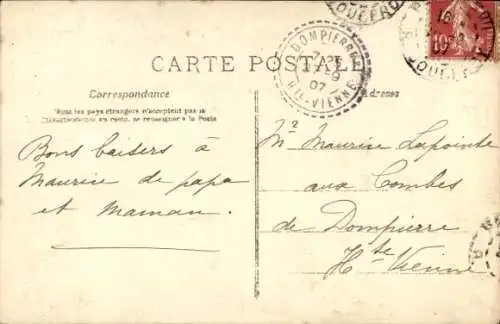 CARTE POSTALE
Correspondance
Tous les pays étrangers n'acceptent pas la
Correspondance au recto, se renseigner à la Poste
Bons baisers à
Maurice de papa
et Maman.
DOMPIERRE
7
9
07
HTE-VIENNE
10
Mr Maurice Lapointe
aux Combes
de Dompierre
Hte Vienne